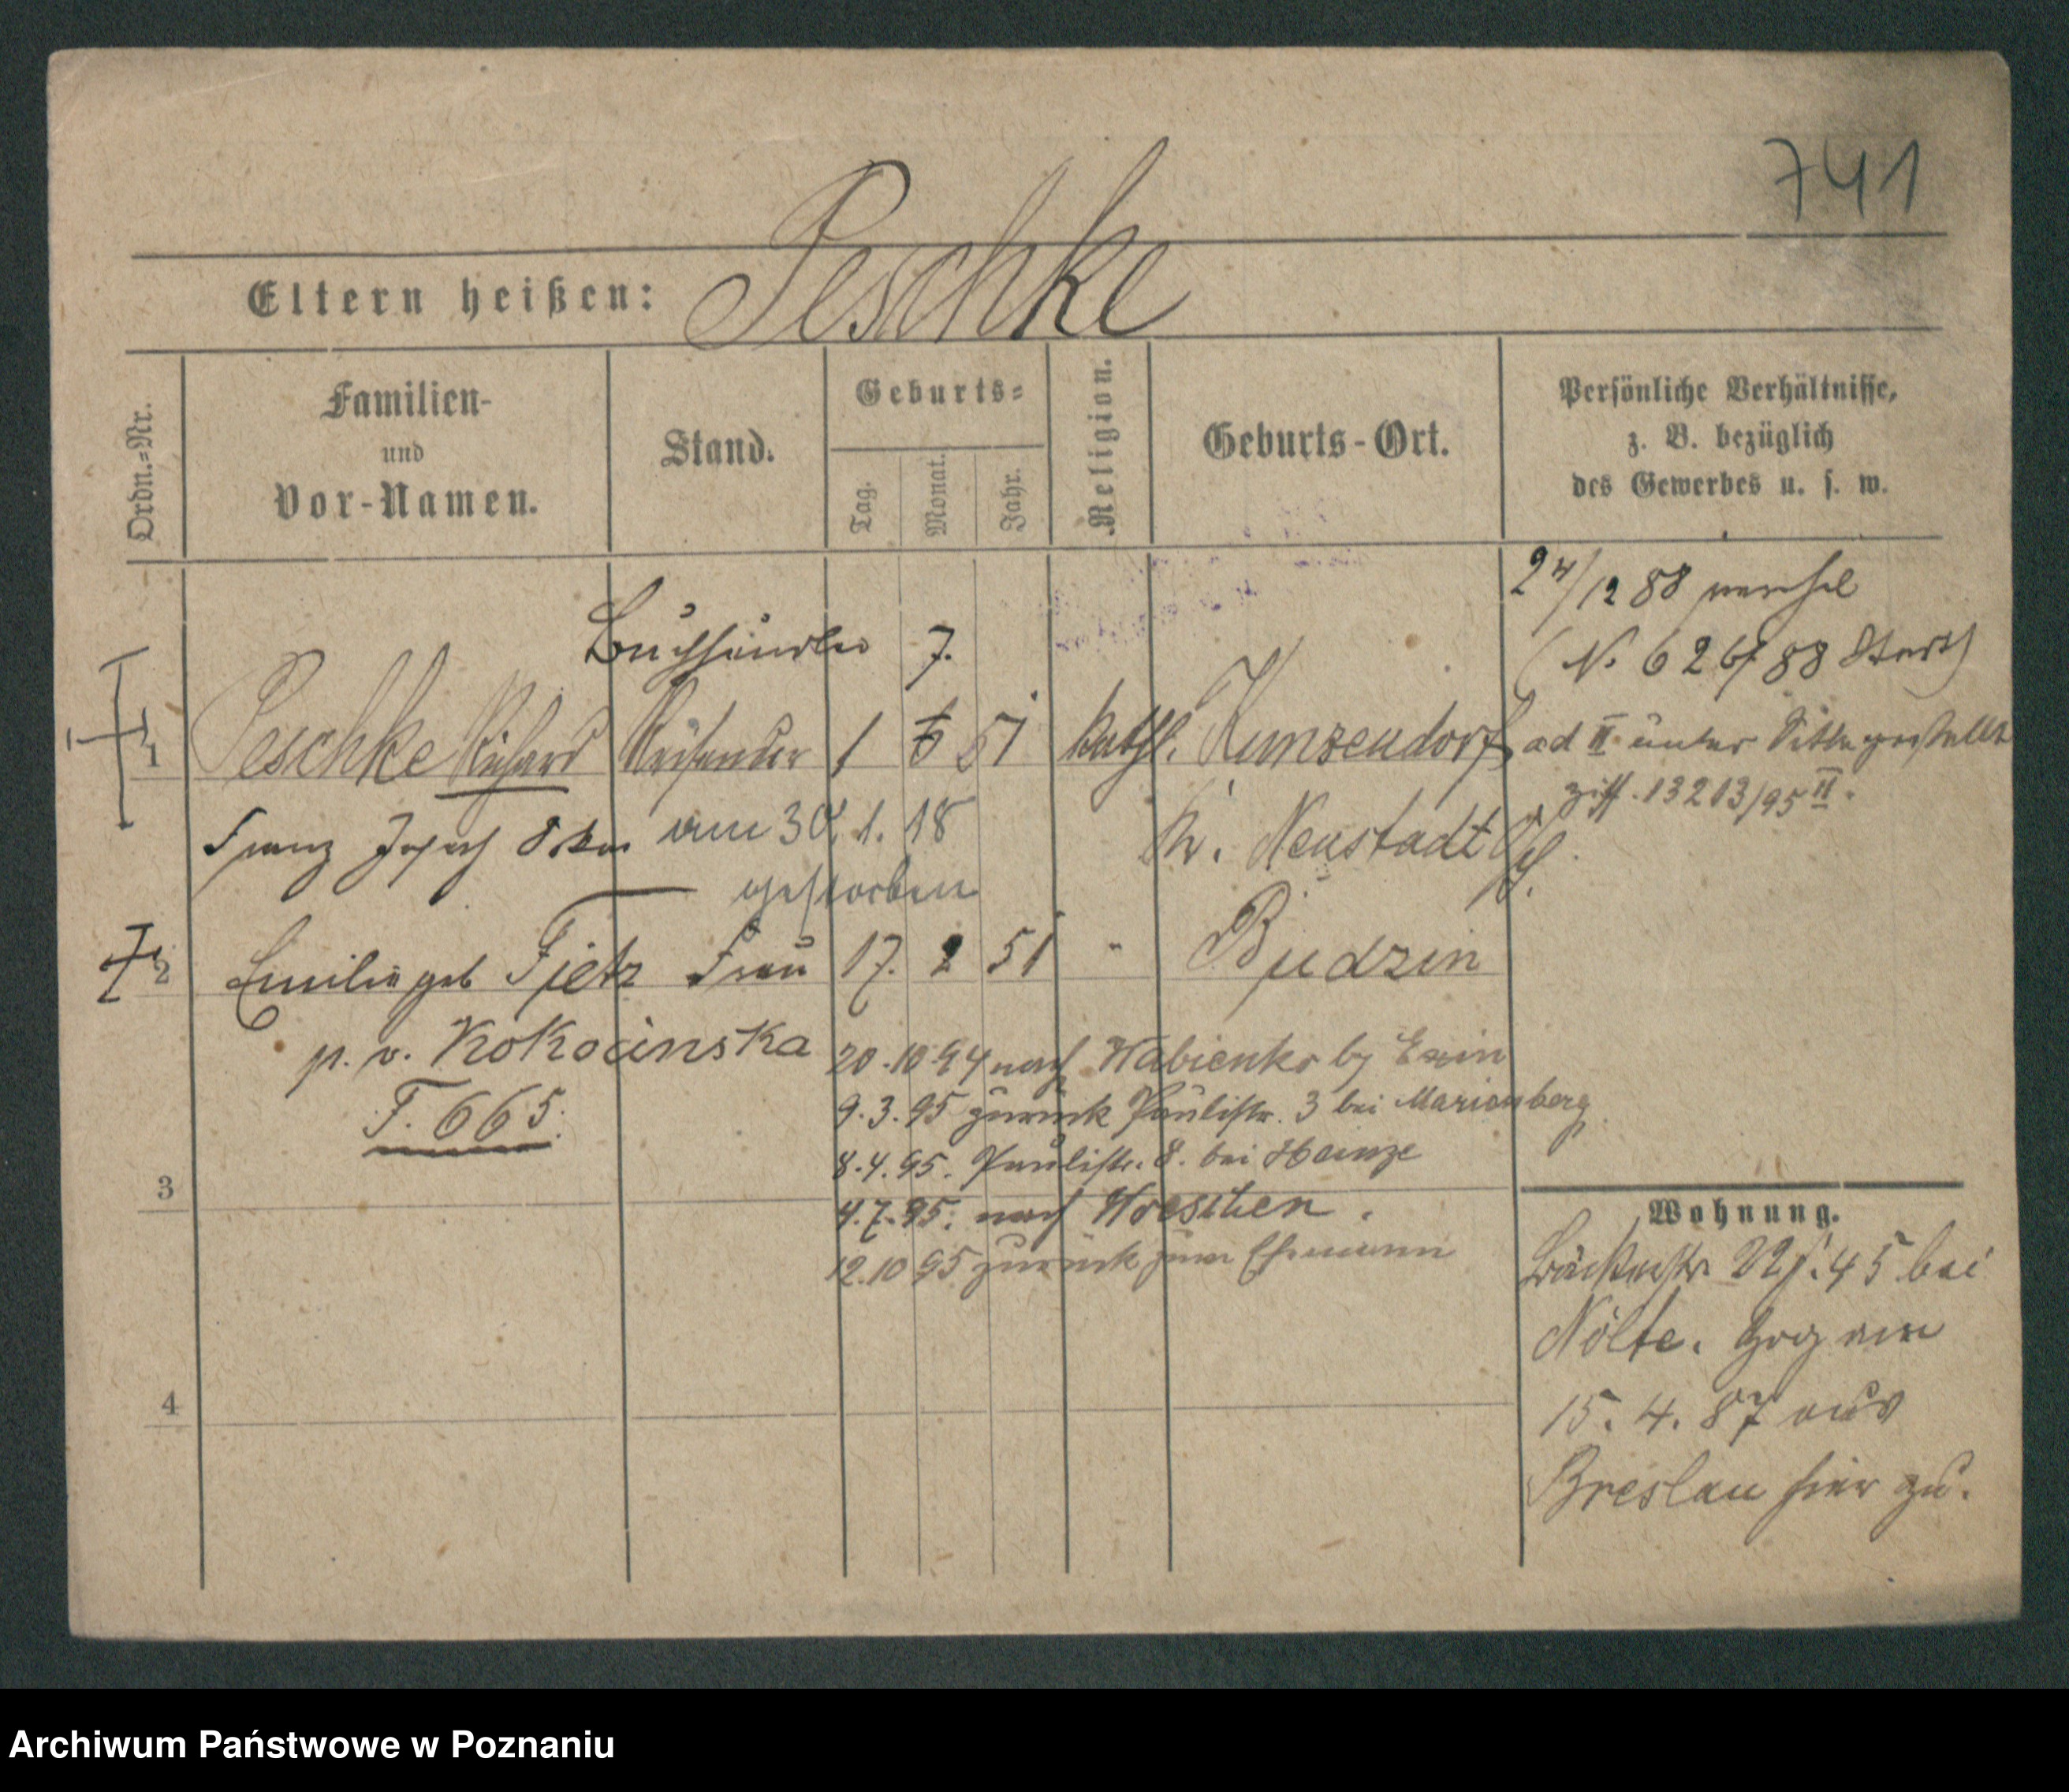 741
Eltern heißen: Peschke
Ordn.=Nr.
Familien-
und
Vor-Namen.
Stand.
Geburts=
Tag.
Monat.
Jahr.
Religion.
Geburts-Ort.
Persönliche Verhältnisse,
z. B. bezüglich
des Gewerbes u. s. w.
24/12 88
(N. 626/88
Buchhändler 7.
1 Peschke Richard Reisender 1 6 51 kathl. Kunzendorf
ad II unter Sitte gestellt
ziff. 13213/95 II.
Franz Joseph Oskar am 30. 1. 18
Kr. Neustadt O/S.
gestorben
2 Emilie geb Tietz Frau 17. 2 51 " Budzin
p. v. Kokocinska
T. 665.
20.10.94 nach Wabienko by Exin
9.3.95 zurück Paulistr. 3 bei Marienberg
8.4.95. Paulistr. 8. bei Heinze
3
4.7.95. nach Wreschen.
12.10 95 zurück zum Ehemann
4
Wohnung.
Bäckerstr. 22 f. 45 bei
Nölte. Zog am
15. 4. 87 aus
Breslau hier zu.
Archiwum Państwowe w Poznaniu